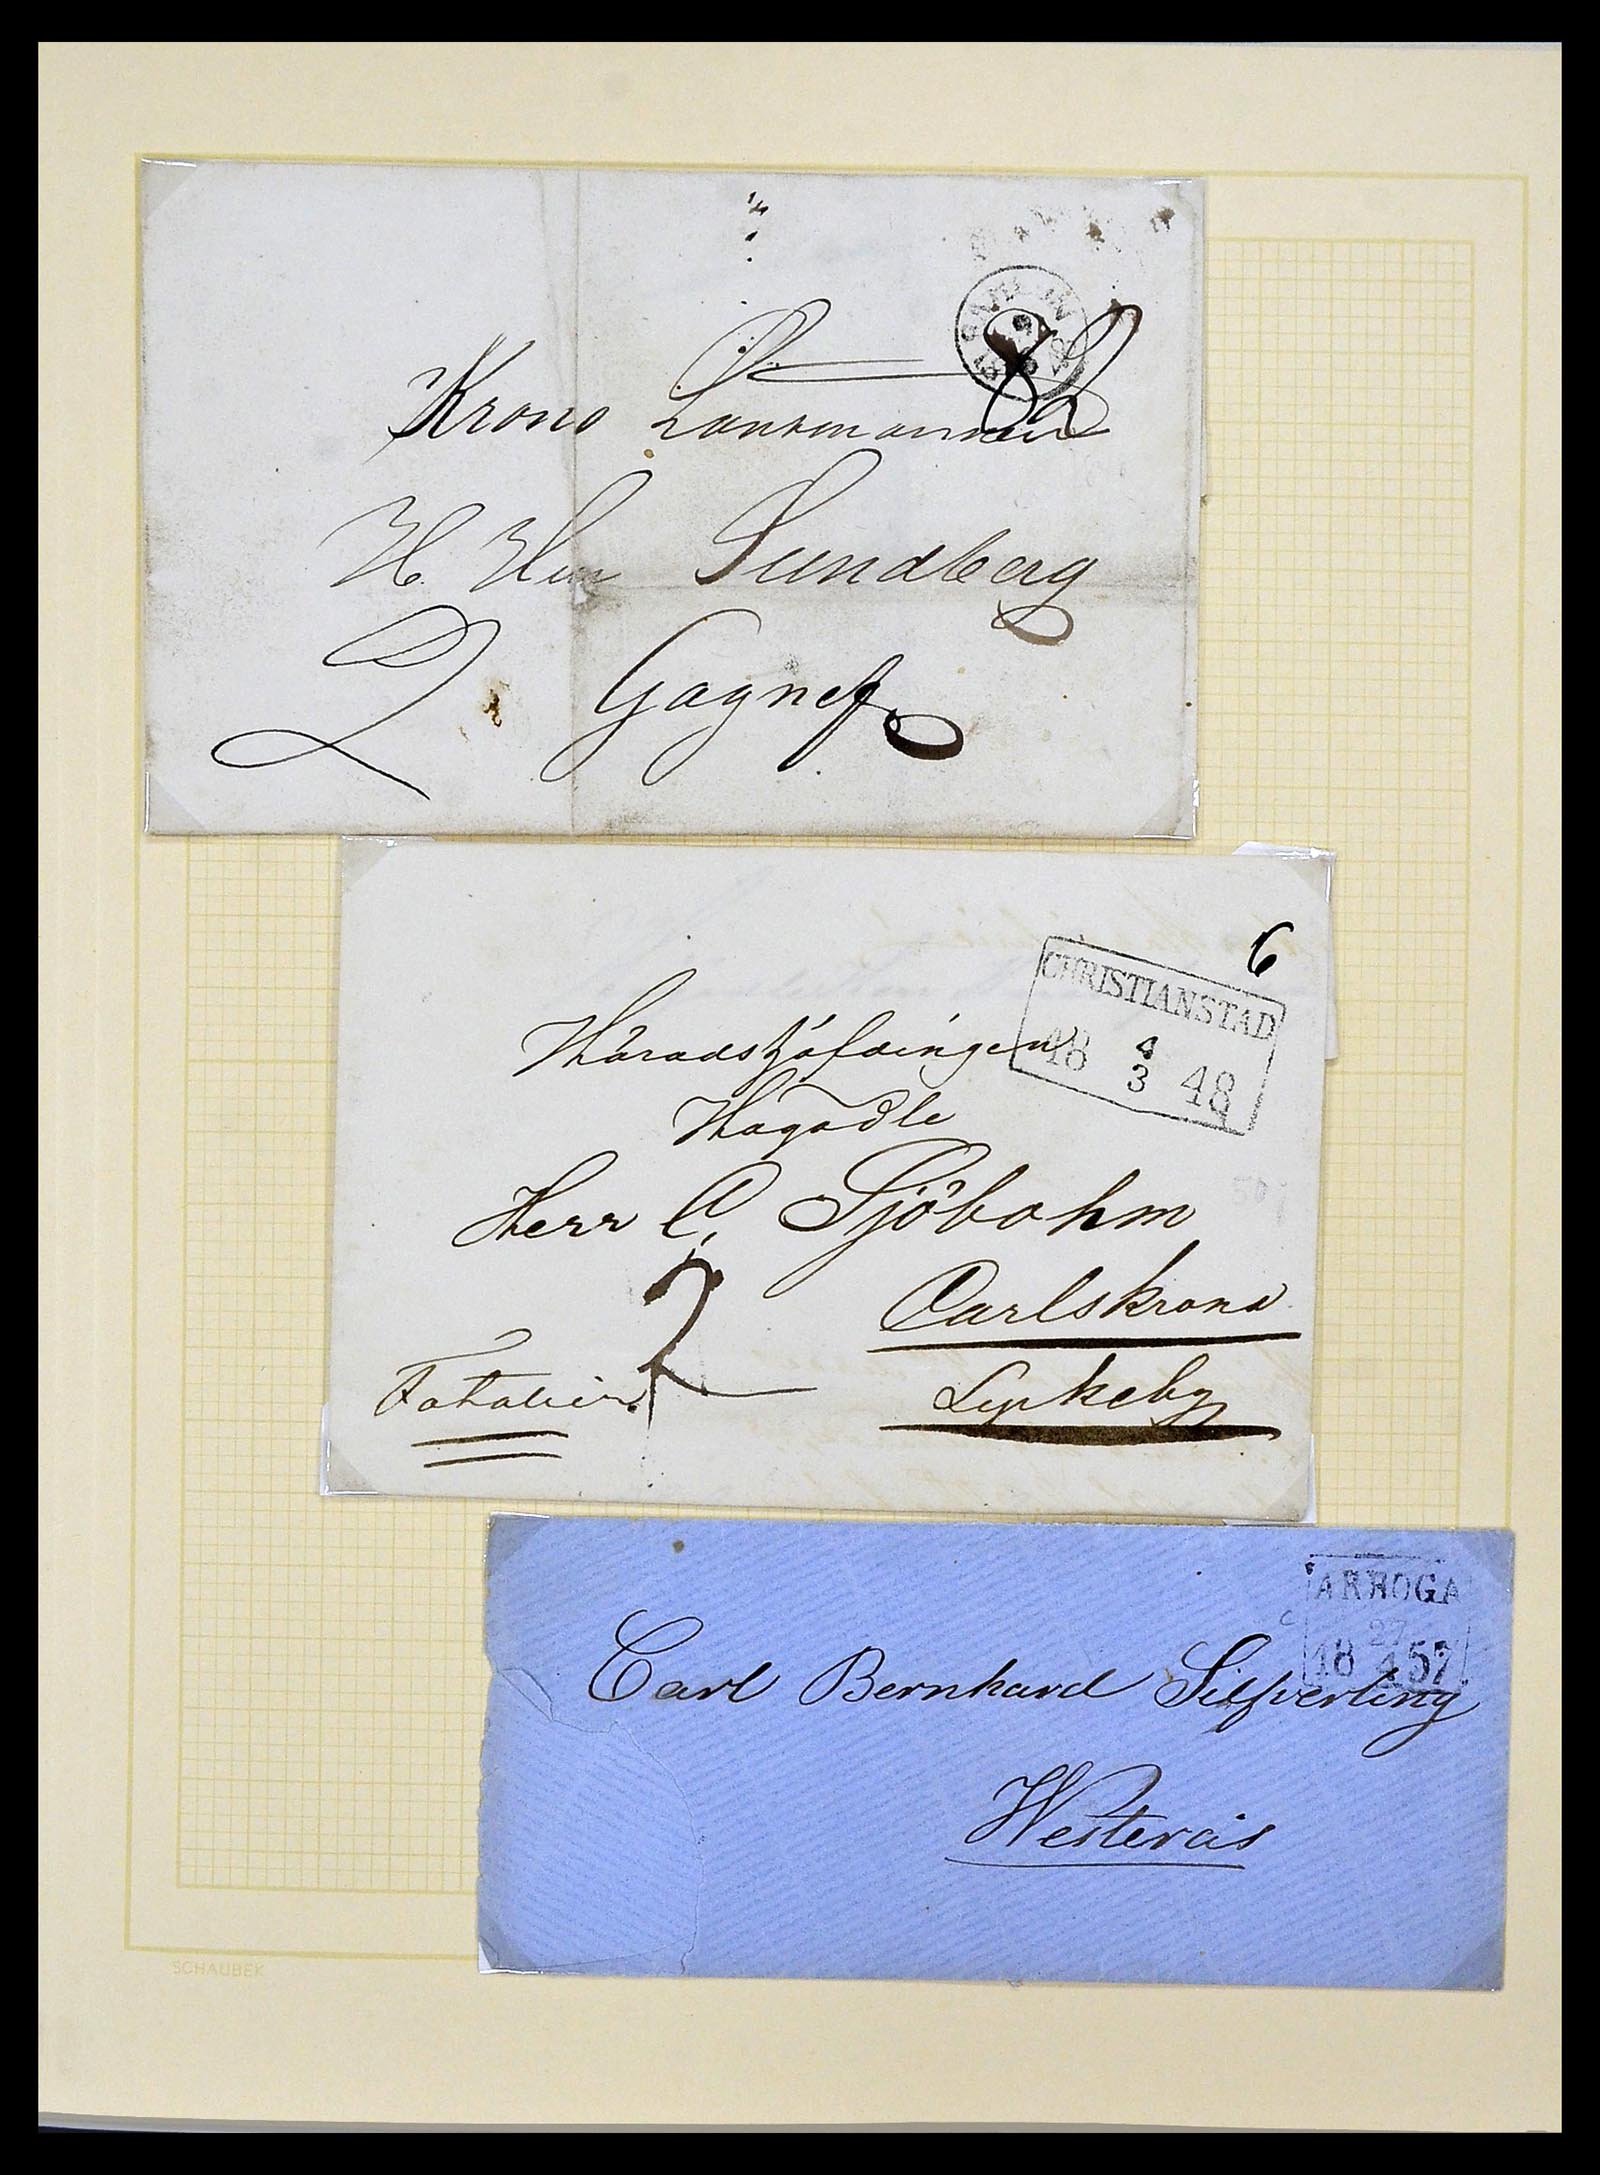 82
Krono Länsmannen
H. Herr Sundberg
2 Gagnef
6
CHRISTIANSTAD
18 4/3 48
Häradshöfdingen
Högädle
Herr C. Sjöbohm
2
Carlskrona
Fatalier.
Lyckeby
ARBOGA
27
18 4 57
Carl Bernhard Silfverling
Westerås
SCHAUBEK